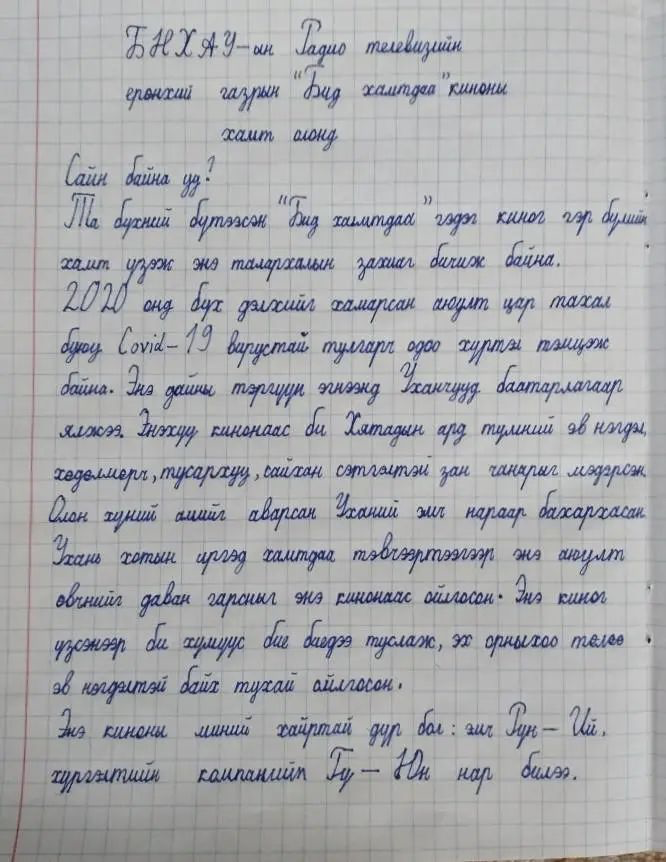 БНХАУ-ын Радио телевизийн
ерөнхий газрын "Бид хамтдаа" киноны
хамт олонд
Сайн байна уу?
Та бүхний бүтээсэн "Бид хамтдаа" гэдэг киног гэр бүлийн
хамт үзэж энэ талархалын захиаг бичиж байна.
2020 онд бүх дэлхийг хамарсан аюулт цар тахал
буюу Covid-19 варустай тулгарч одоо хүртэл тэмцэж
байна. Энэ дайны тэргүүн эгнээнд Уханчууд баатарлагаар
ялжээ. Энэхүү кинонаас би Хятадын ард түмний эв нэгдэл,
хөдөлмөрч, тусархуу, сайхан сэтгэлтэй зан чанарыг мэдэрсэн.
Олон хүний амийг аварсан Уханий эмч нараар бахархасан.
Ухань хотын иргэд хамтдаа тэвчээртээгээр энэ аюулт
өвчнийг даван гарсныг энэ кинонаас ойлгосон. Энэ киног
үзсэнээр би хүмүүс бие биедээ туслаж, эх орныхоо төлөө
эв нэгдэлтэй байх тухай ойлгосон.
Энэ киноны миний хайртай дүр бол: эмч Рүн-Ий,
хүргэлтийн компанийп Гу-Юн нар билээ.